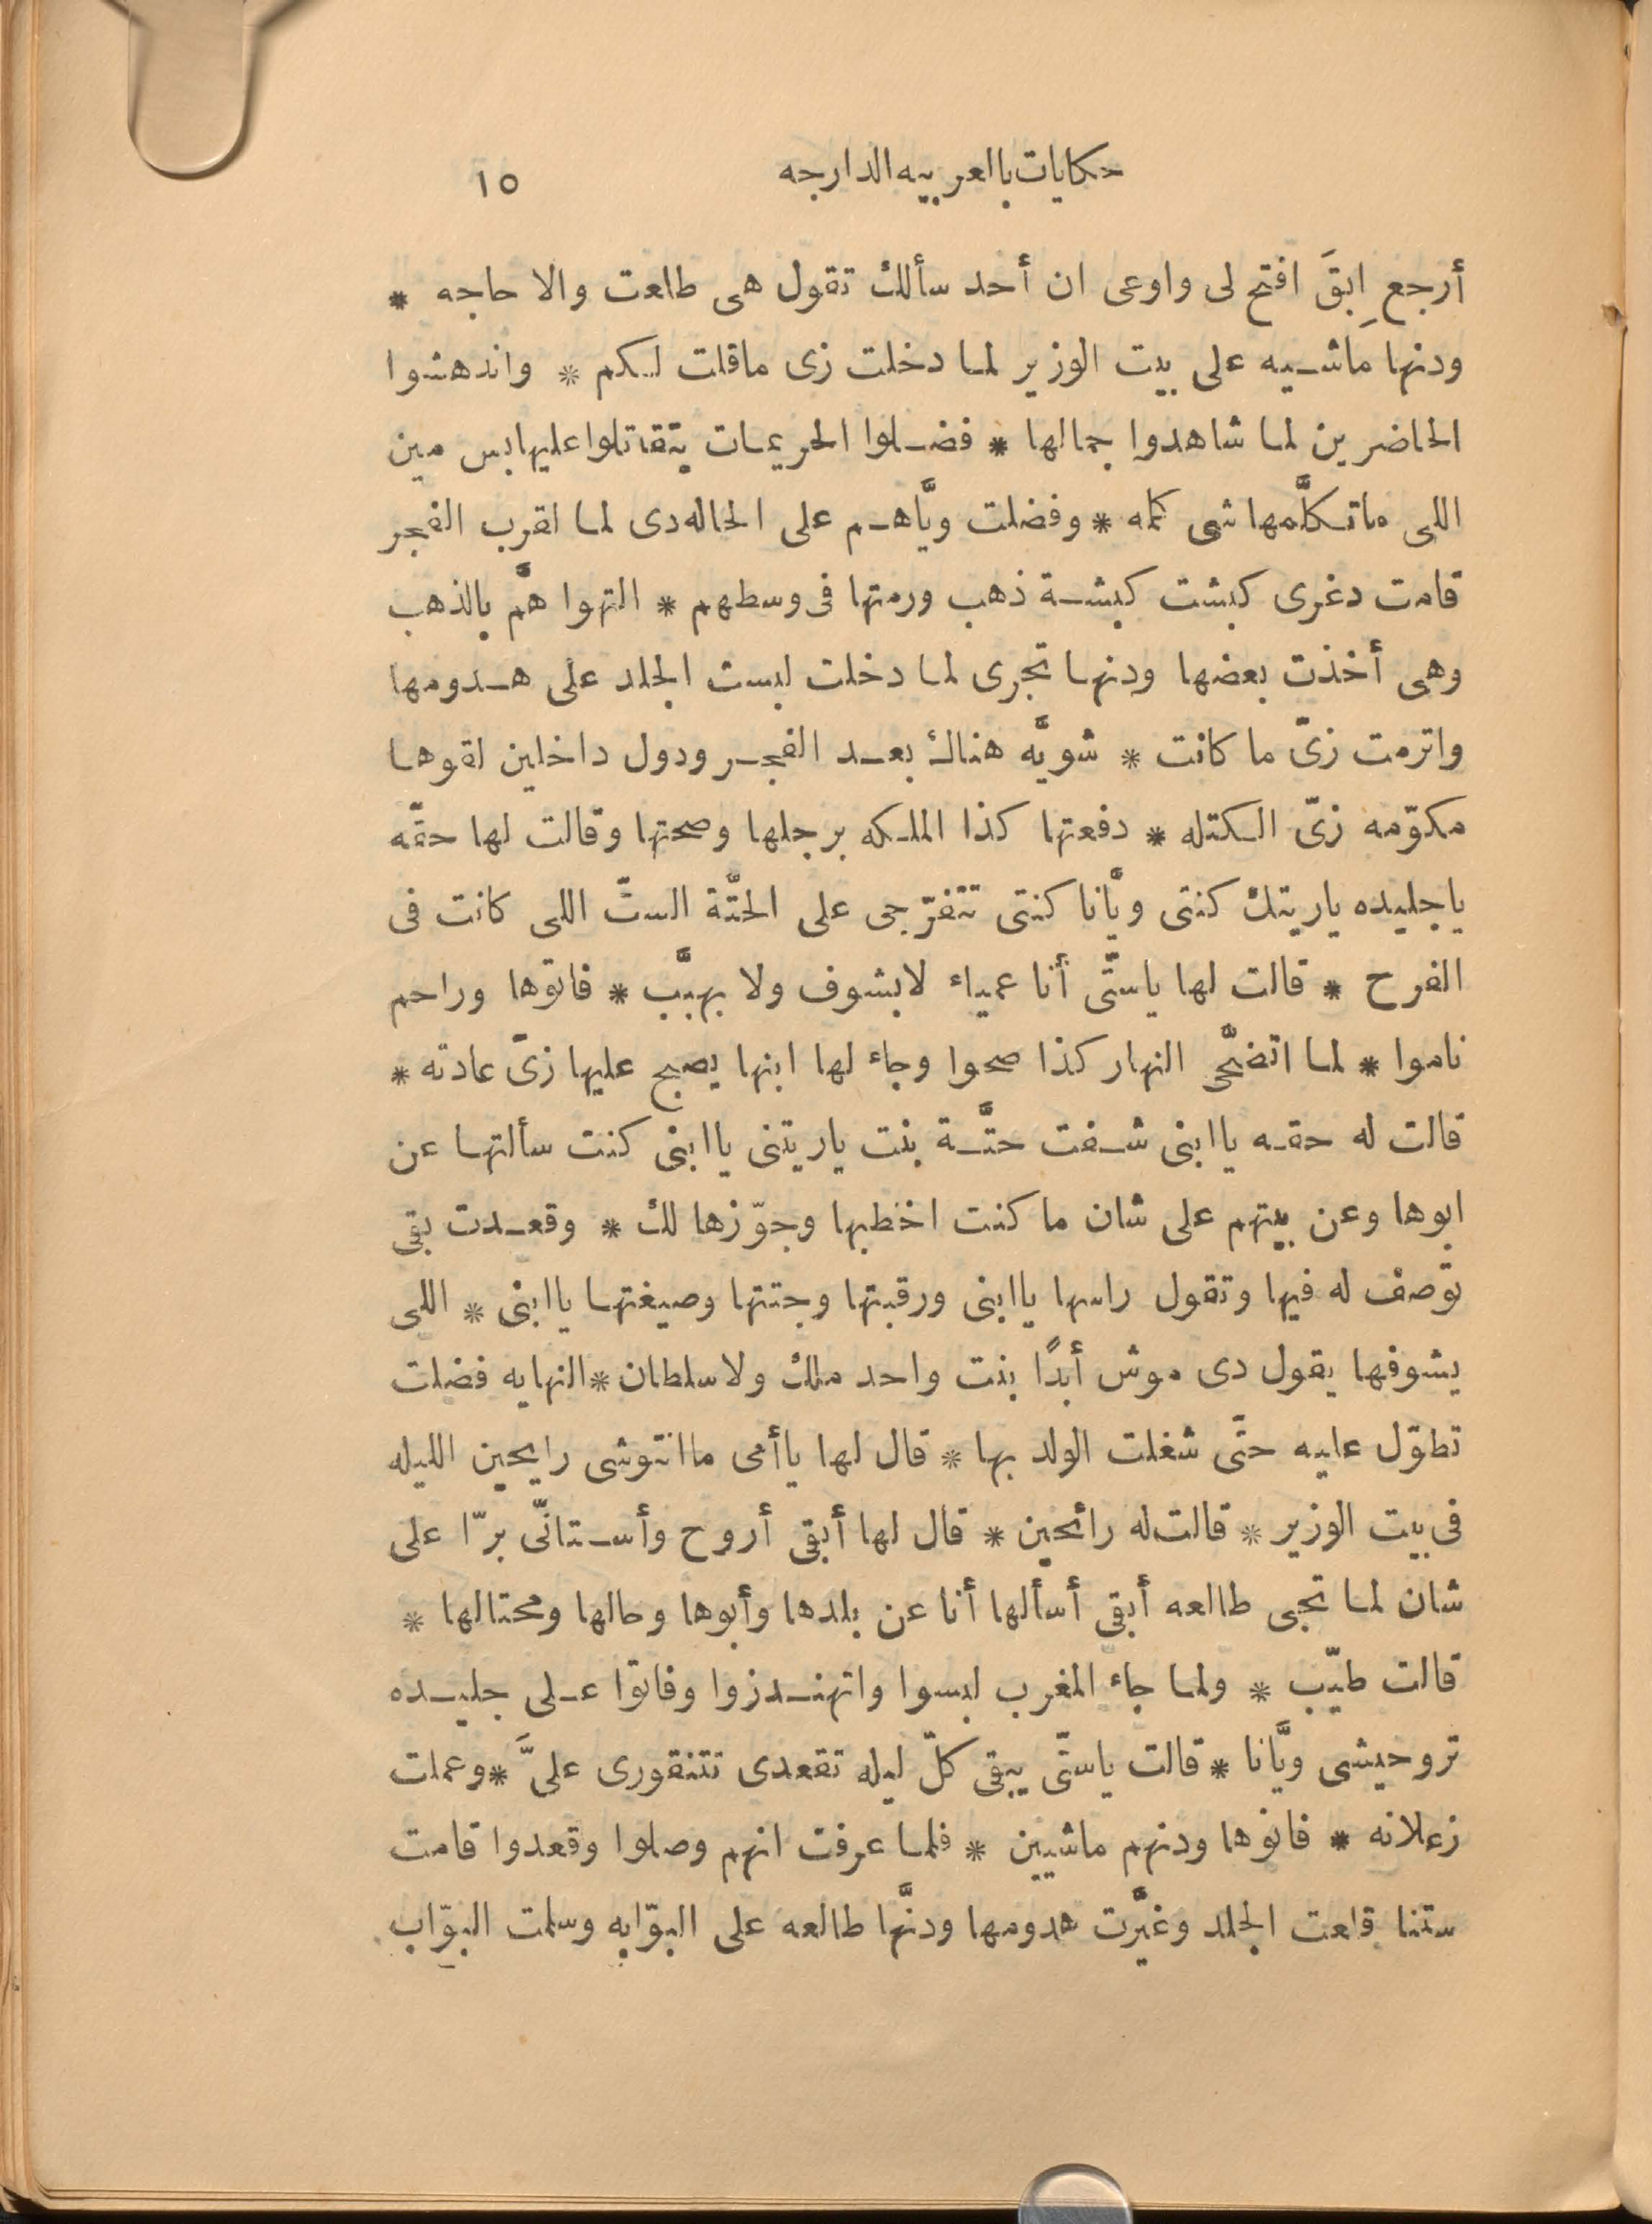 حكايات باالعربيه الدارجه ١٥
أرجع اِبقَ افتح لى واوعى ان أحد سألك تقول هى طلعت والا حاجه *
ودنها ماشيه على بيت الوزير لما دخلت زى ماقلت لكم * واندهشوا
الحاضرين لما شاهدوا جمالها * فضلوا الحريمات يتقاتلوا عليها بس مين
اللى ماتكلَّمهاشى كلمه * وفضلت ويَّاهم على الحاله دى لما لقرب الفجر
قامت دغرى كبشت كبشة ذهب ورمتها فى وسطهم * التهوا همَّ بالذهب
وهى أخذت بعضها ودنها تجرى لما دخلت لبست الجلد على هدومها
واترمت زىّ ما كانت * شويَّه هناك بعد الفجر ودول داخلين لقوها
مكوّمه زىّ الكتله * دفعتها كذا الملكه برجلها وصحتها وقالت لها حقّه
ياجليده ياريتك كنتى ويَّانا كنتى تتفرّجى على الحتَّة الستّ اللى كانت فى
الفرح * قالت لها ياستّى أنا عمياء لابشوف ولا بهبَّب * فاتوها وراحم
ناموا * لما اتضحَّى النهار كذا صحوا وجاء لها ابنها يصبح عليها زىّ عادته *
قالت له حقه ياابنى شفت حتَّة بنت ياريتنى ياابنى كنت سألتها عن
ابوها وعن بيتهم على شان ما كنت اخطبها وجوّزها لك * وقعدت بقى
توصف له فيها وتقول راسها ياابنى ورقبتها وجتتها وصيغتها ياابنى * اللى
يشوفها يقول دى موش أبدًا بنت واحد ملك ولا سلطان * النهايه فضلت
تطوّل عليه حتَّى شغلت الولد بها * قال لها ياأمى ماانتوشى رايحين الليله
فى بيت الوزير * قالت له رائحين * قال لها أبقى أروح وأستانَّى برّا على
شان لما تجى طالعه أبقى أسألها أنا عن بلدها وأبوها وحالها ومحتالها *
قالت طيّب * ولما جاء المغرب لبسوا واتهندزوا وفاتوا على جليده
تروحيشى ويَّانا * قالت ياستّى يبقى كلّ ليله تقعدى تتنقورى علىَّ * وعملت
زعلانه * فاتوها ودنهم ماشيين * فلما عرفت انهم وصلوا وقعدوا قامت
ستنا قلعت الجلد وغيَّرت هدومها ودنَّها طالعه على البوّابه وسلمت البوّاب